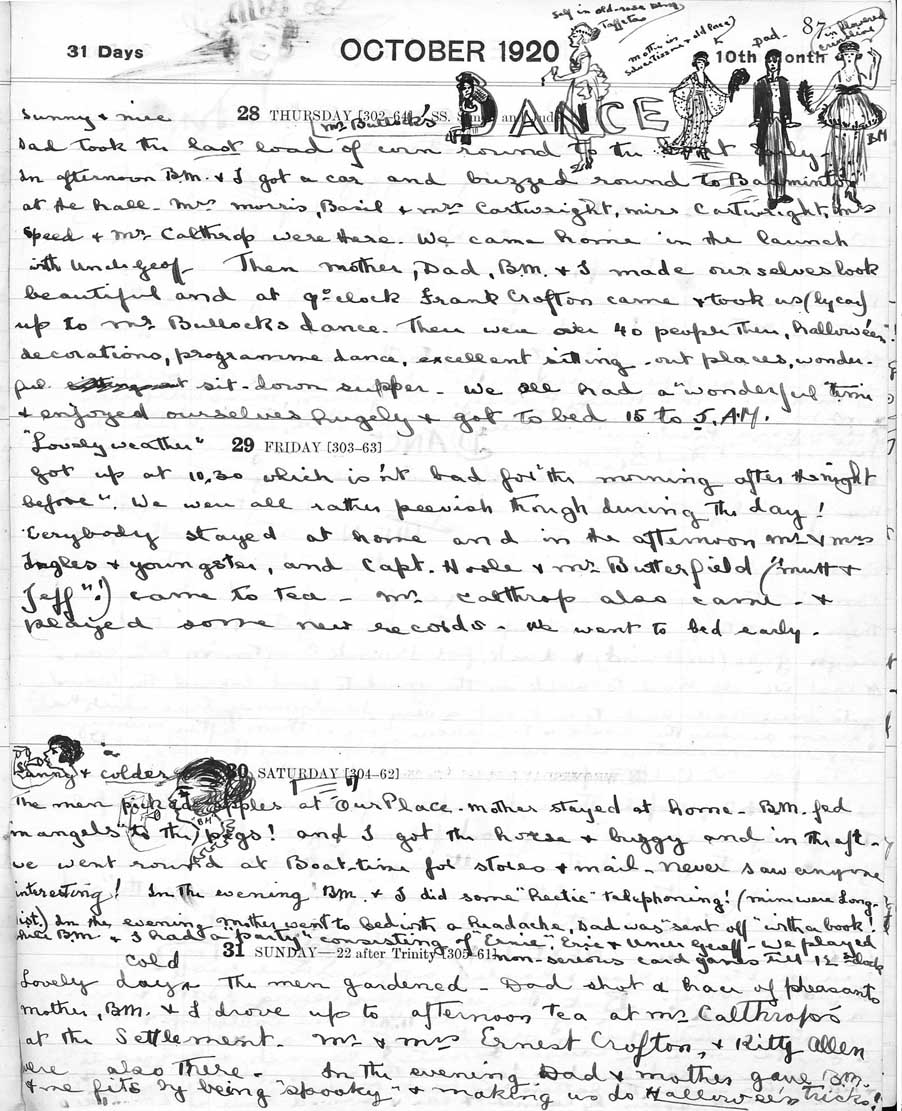 31 Days
OCTOBER 1920
10th Month
87
Self in old-rose
Taffeta
Mother in
+ old lace)
Dad-
in flowered
B.M
DANCE
28 THURSDAY [302-64] SS.
Sunny & nice
Mr Bullock's
Dad took the last load of corn round to the
In afternoon B.M. & I got a car and buzzed round to Badminton
at the hall. Mrs Morris, Basil & Mrs Cartwright, Miss Cartwright, Mrs
Speed & Mr Calthrop were there. We came home in the launch
with Uncle Geoff Then Mother, Dad, B.M. & I made ourselves look
beautiful and at 9 o'clock Frank Crofton came & took us (by car)
up to Mr Bullocks dance. There were over 40 people there, hallowe'en
decorations, programme dance, excellent sitting-out places, wonder-
ful sit-down supper. We all had a "wonderful" time
& enjoyed ourselves hugely & got to bed 15 to 5. A.M.
"Lovely weather"
29 FRIDAY [303-63]
Got up at 10.30 which is'nt bad for "the morning after the night
before". We were all rather peevish though during the day!
Everybody stayed at home and in the afternoon Mr & Mrs
Ingles & youngster, and Capt. Hoole & Mr Butterfield ("Mutt &
Jeff"!) came to tea - Mr Calthrop also came - &
played some new records. We went to bed early.
Sunny & colder
30 SATURDAY [304-62]
"BM"
The men picked apples at "Our Place". Mother stayed at home. B.M. fed
mangels to the pegs! and I got the horse & buggy and in the aft-
we went round at Boat-time for stores & mail - never saw anyone
interesting! In the evening B.M. & I did some "hectic" telephoning! (mine were Long-
ist) In the evening Mother went to bed with a headache, Dad was "sent off" with a book!
B.M. & I had a "party" consisting of "Ernie", Eric & Uncle Geoff - we played
non-serious card games till 12 o'clock
31 SUNDAY—22 after Trinity [305-61]
cold
Lovely day. The men gardened - Dad shot a brace of pheasants
Mother, B.M. & I drove up to afternoon tea at Mr Calthrop's
at the Settlement. Mr & Mrs Ernest Crofton, & Kitty Allen
were also there. In the evening Dad & Mother gave B.M.
& me fits by being "spooky" & making us do Hallowe'en tricks!